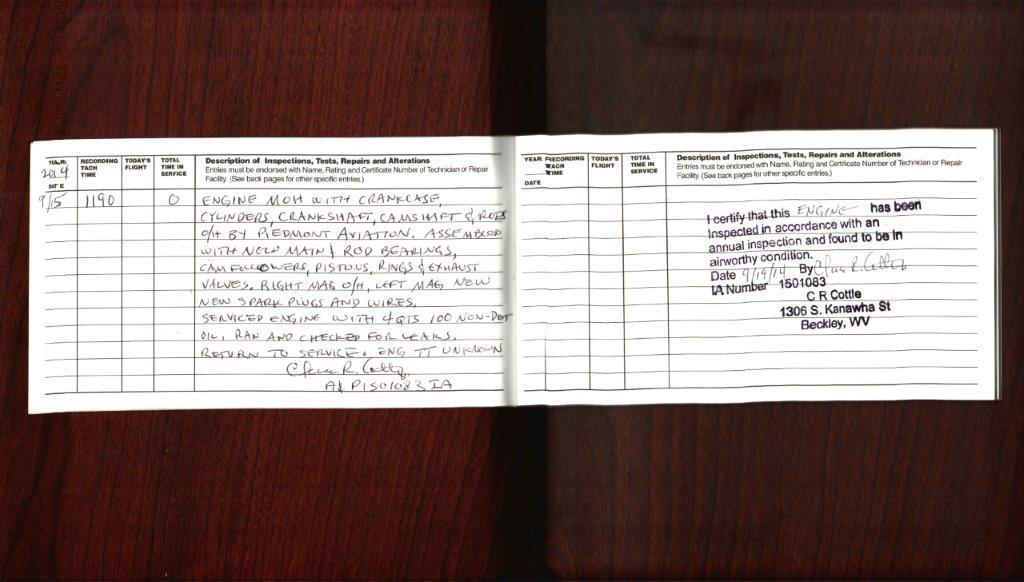 YEAR RECORDING TACH TIME TODAY'S FLIGHT TOTAL TIME IN SERVICE Description of Inspections, Tests, Repairs and Alterations
2014
DATE
Entries must be endorsed with Name, Rating and Certificate Number of Technician or Repair
Facility. (See back pages for other specific entries.)
9/15 1190 0 ENGINE MOH WITH CRANKCASE,
CYLINDERS, CRANKSHAFT, CAMSHAFT & RODS
O/H BY PIEDMONT AVIATION. ASSEMBLED
WITH NEW MAIN & ROD BEARINGS,
CAM FOLLOWERS, PISTONS, RINGS & EXHAUST
VALVES. RIGHT MAG O/H, LEFT MAG NEW
NEW SPARK PLUGS AND WIRES.
SERVICED ENGINE WITH 4 QTS 100 NON-DET
OIL, RAN AND CHECKED FOR LEAKS.
RETURN TO SERVICE. ENG TT UNKNOWN
R. Cottle
A&P 1501083 IA
YEAR RECORDING TACH TIME TODAY'S FLIGHT TOTAL TIME IN SERVICE Description of Inspections, Tests, Repairs and Alterations
DATE
Entries must be endorsed with Name, Rating and Certificate Number of Technician or Repair
Facility. (See back pages for other specific entries.)
I certify that this ENGINE has been
Inspected in accordance with an
annual inspection and found to be in
airworthy condition.
Date 9/19/14 By R. Cottle
IA Number 1501083
C R Cottle
1306 S. Kanawha St
Beckley, WV